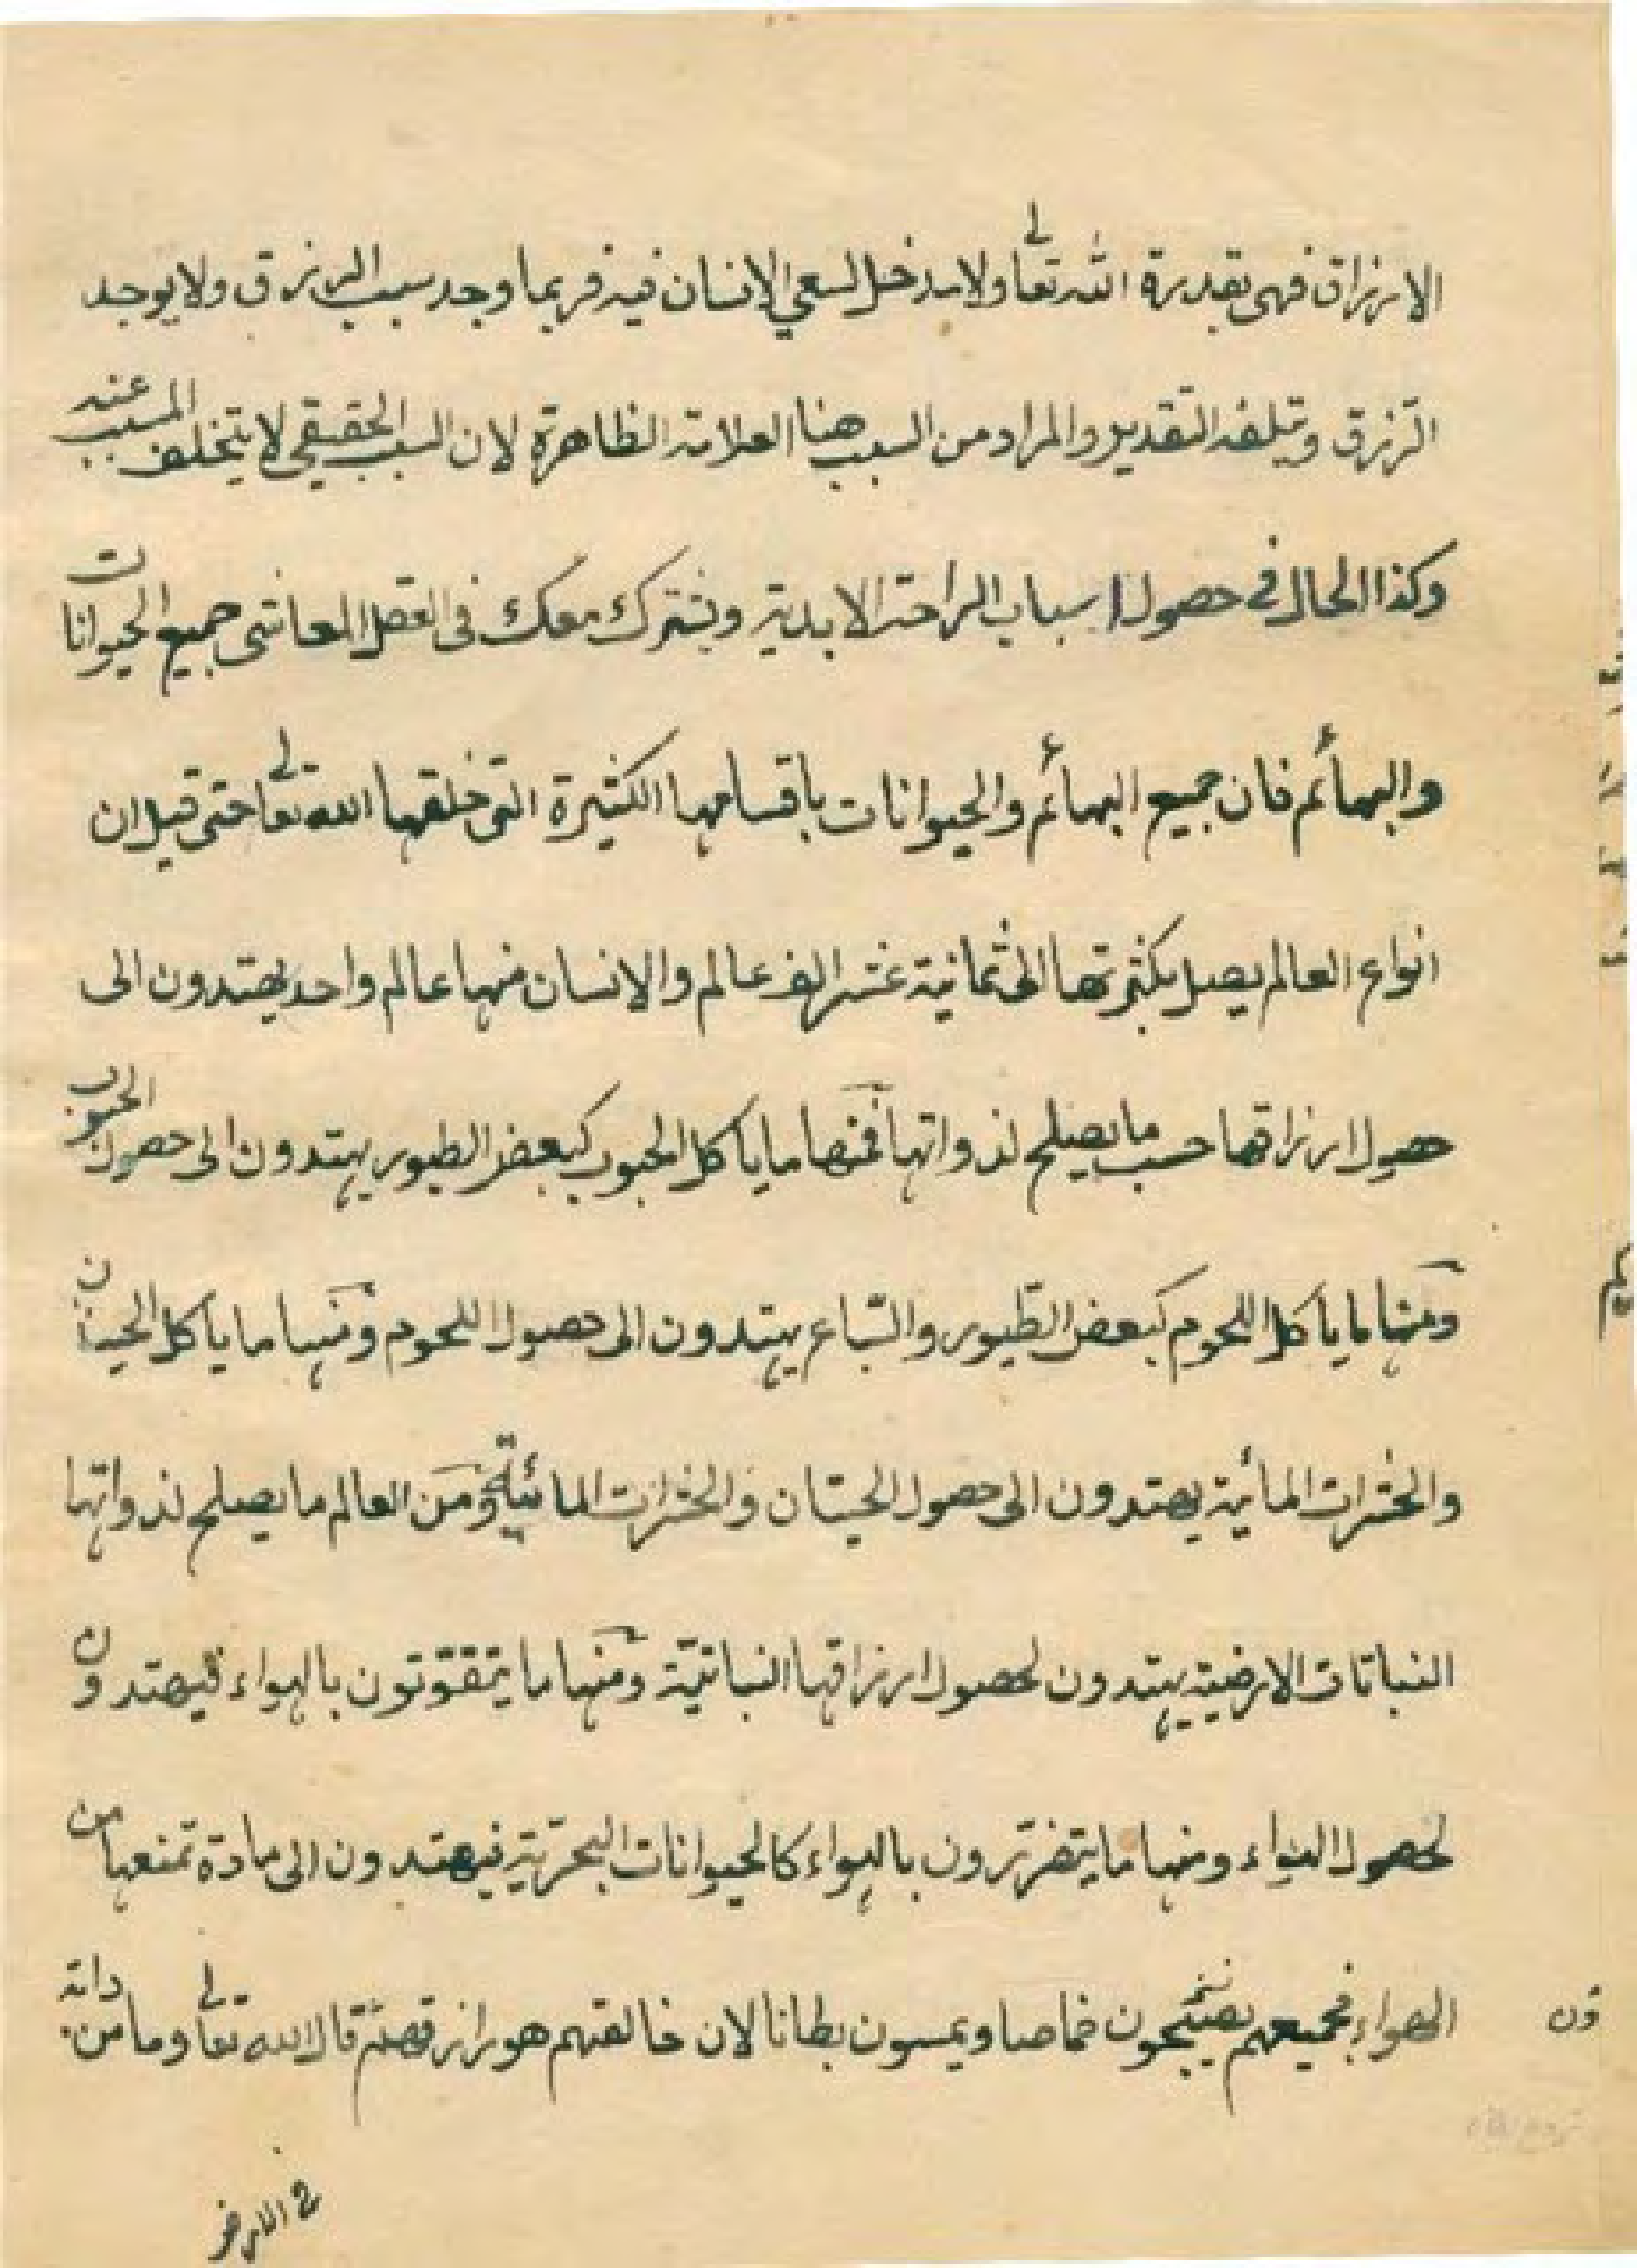 الارزاق فهى بقدرة الله تعالى ولا يدخل لسعي الانسان فيه فربما وجد سبب الرزق ولا يوجد
الرزق ويتلفه التقدير والمراد من السبب هنا العلامة الظاهرة لان السبب الحقيقي لا يتخلف المسبب عنه
وكذا الحال في حصول اسباب الراحة الابدية ويشترك معك فى العقل المعاشى جميع الحيوانات
والبهائم فان جميع البهائم والحيوانات باقسامها الكثيرة التى خلقها الله تعالى حتى قيل ان
انواع العالم يصل بكثرتها الى ثمانية عشر الف عالم والانسان منها عالم واحد يهتدون الى
حصول ارزاقها حسب ما يصلح لذواتها فمنها ما ياكل الحبوب كبعض الطيور يهتدون الى حصول الحبوب
ومنها ما ياكل اللحوم كبعض الطيور والسباع يهتدون الى حصول اللحوم ومنها ما ياكل الحيتان
والحشرات المائية يهتدون الى حصول الحيتان والحشرات المائية ومن العالم ما يصلح لذواتها
النباتات الارضية يهتدون لحصول ارزاقها النباتية ومنها ما يتقوتون بالهواء فيهتدون
لحصول الهواء ومنها ما يتضررون بالهواء كالحيوانات البحرية فيهتدون الى مادة تمنعها من
الهواء فجميعهم يصبحون خماصا ويمسون بطانا لان خالقهم هو رازقهم قال الله تعالى وما من دابة
فى الارض